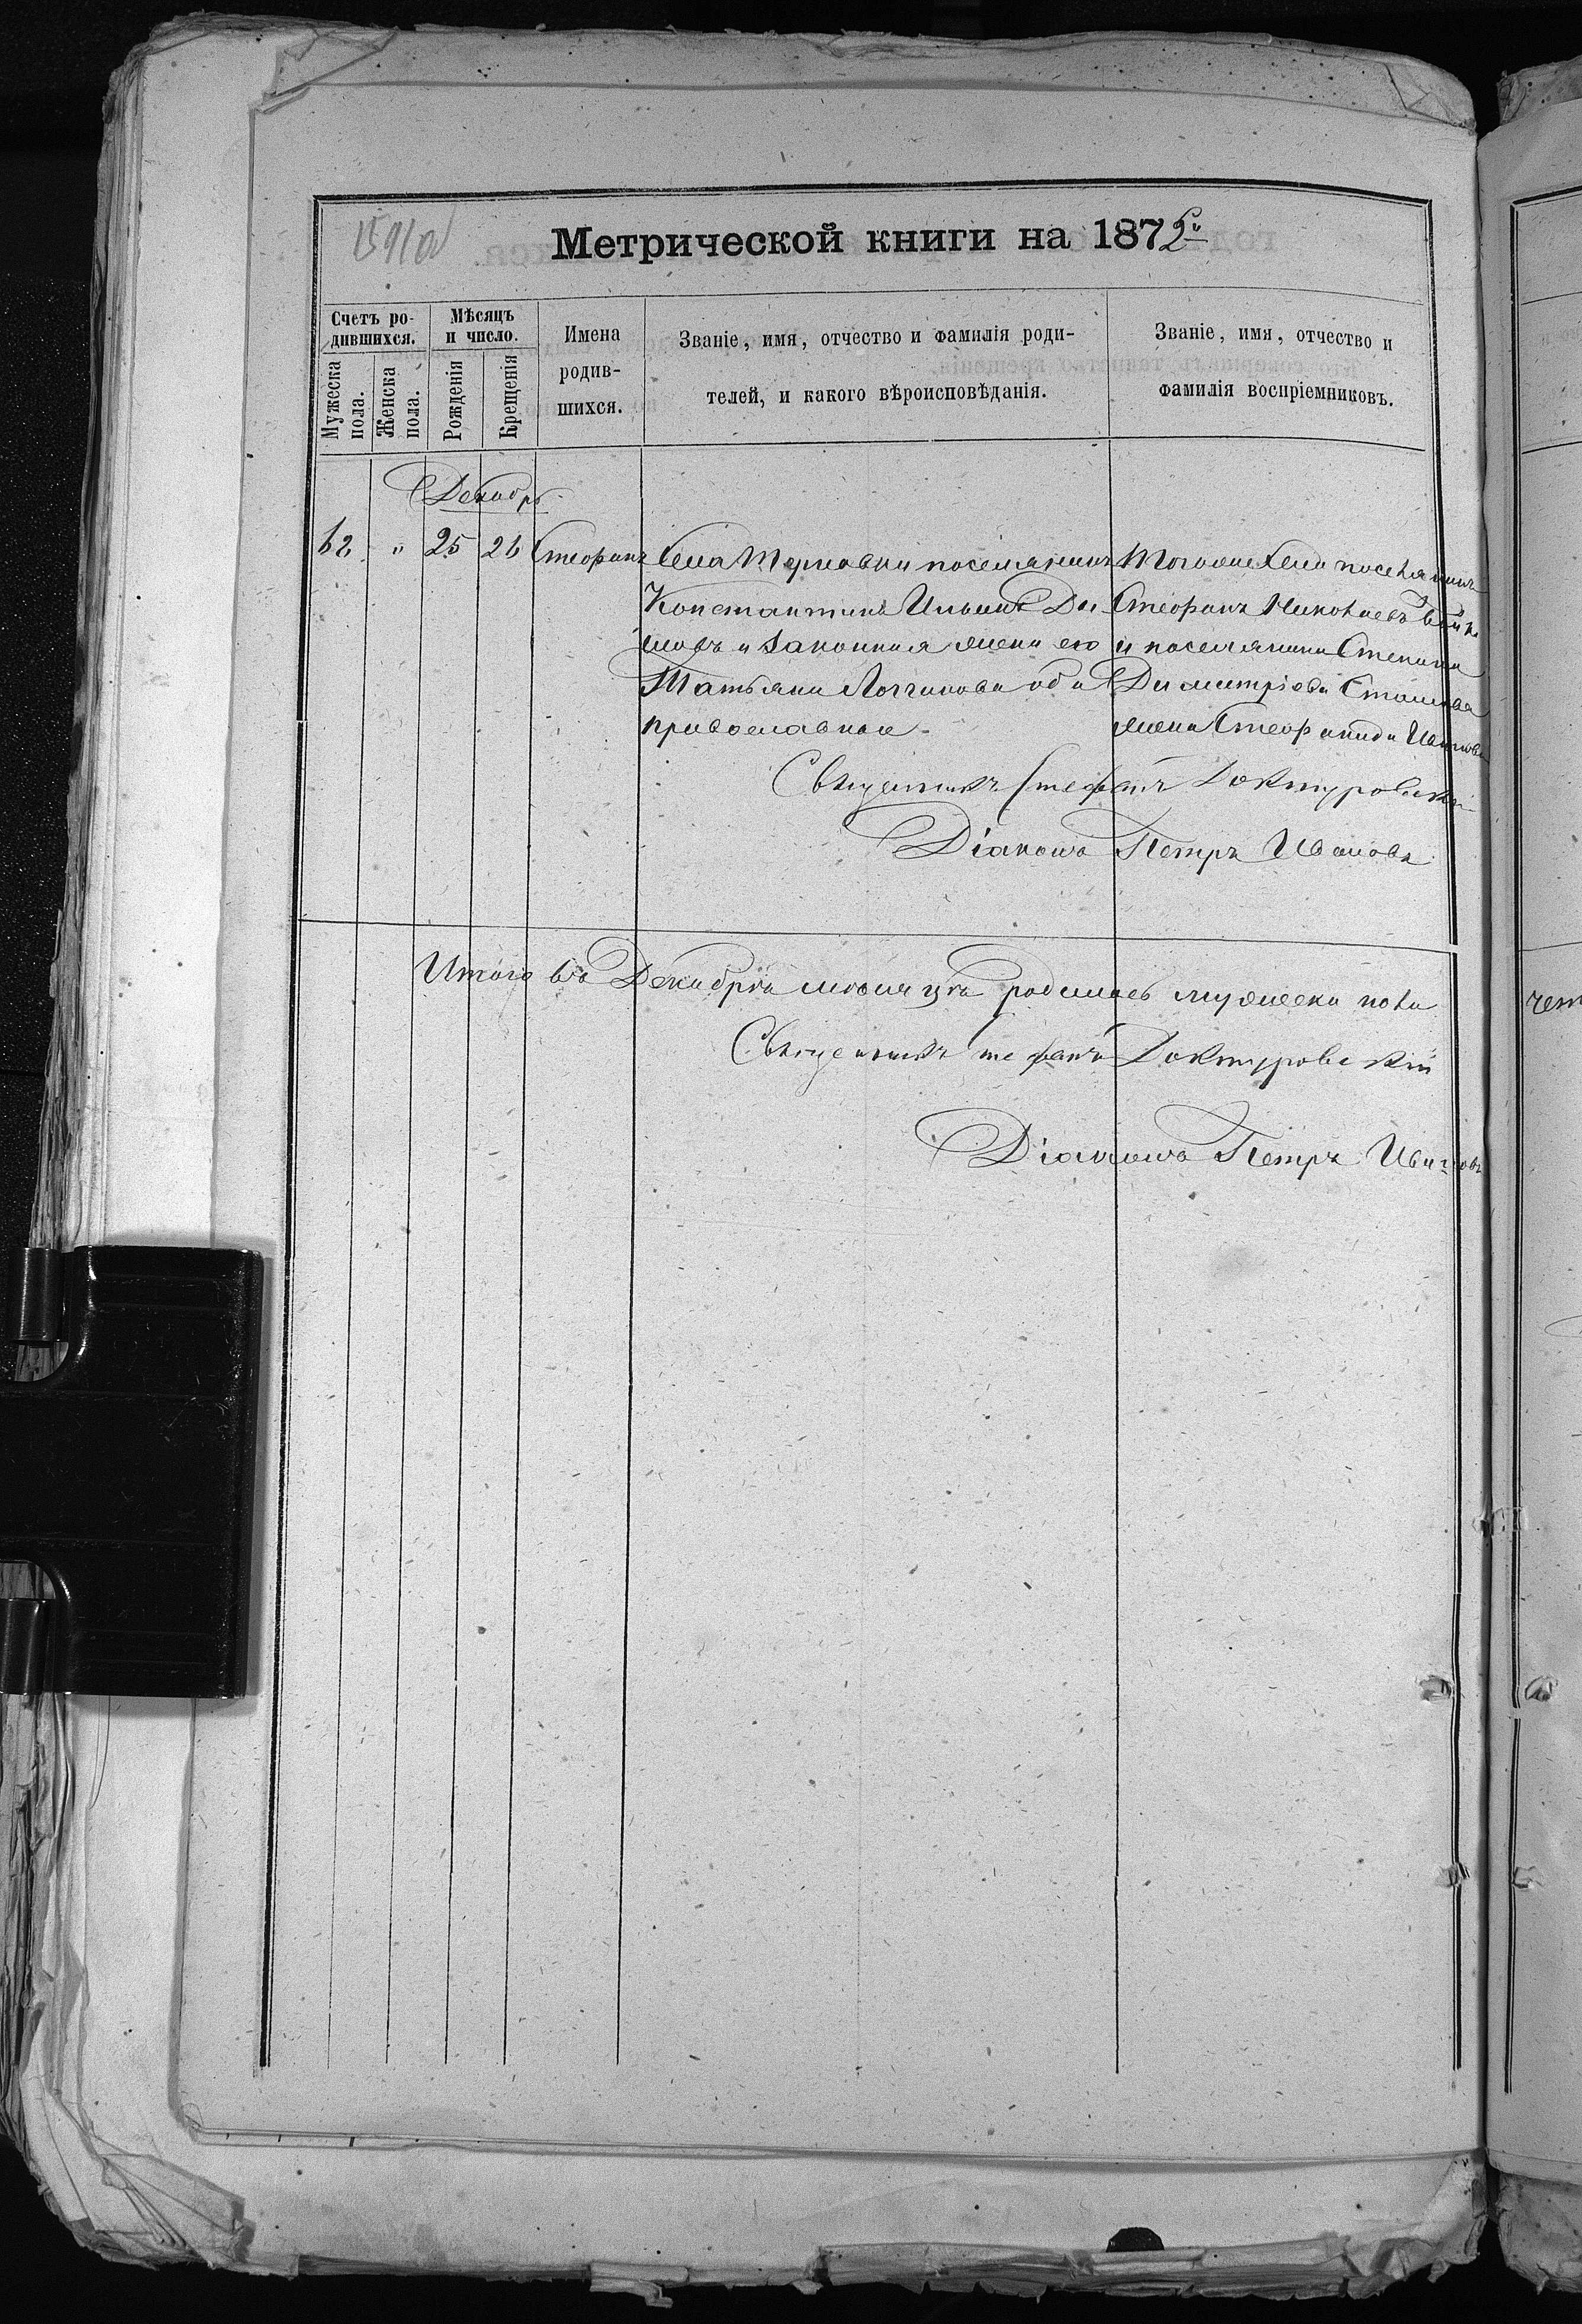 Метрической книги на 1872й
Счетъ ро-
дившихся.
Мужеска
пола.
Женска
пола.
Мѣсяцъ
и число.
Рожденія
Крещенія
Имена
родив-
шихся.
Званіе, имя, отчество и фамилія роди-
телей, и какого вѣроисповѣданія.
Званіе, имя, отчество и
фамилія воспріемниковъ.
Декабрь
62 " 25 26 Стефанъ
Села Терновки поселянинъ
Константинъ Ильинъ Ди-
мовъ и законная жена его
Татьяна Логгинова оба
православные
Тогоже села поселянинъ
Стефанъ Николаевъ
и поселянина Степана
Димитріева Стоилова
жена Стефанида Иванова
Священникъ Стефанъ Доктуровскій
Діаконъ Петръ Ивановъ
Итого въ Декабрѣ мѣсяцѣ родилось мужеска пола
Священникъ Стефанъ Доктуровскій
Діаконъ Петръ Ивановъ
чет